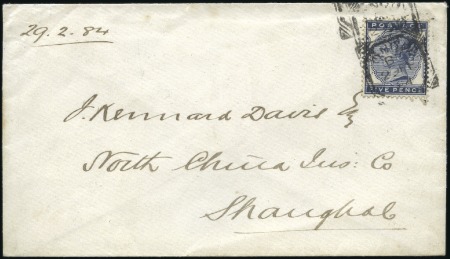 29.2.84
POSTAGE
FIVE PENCE
J. Kennard Davis Esq
North China Ins: Co
Shanghai